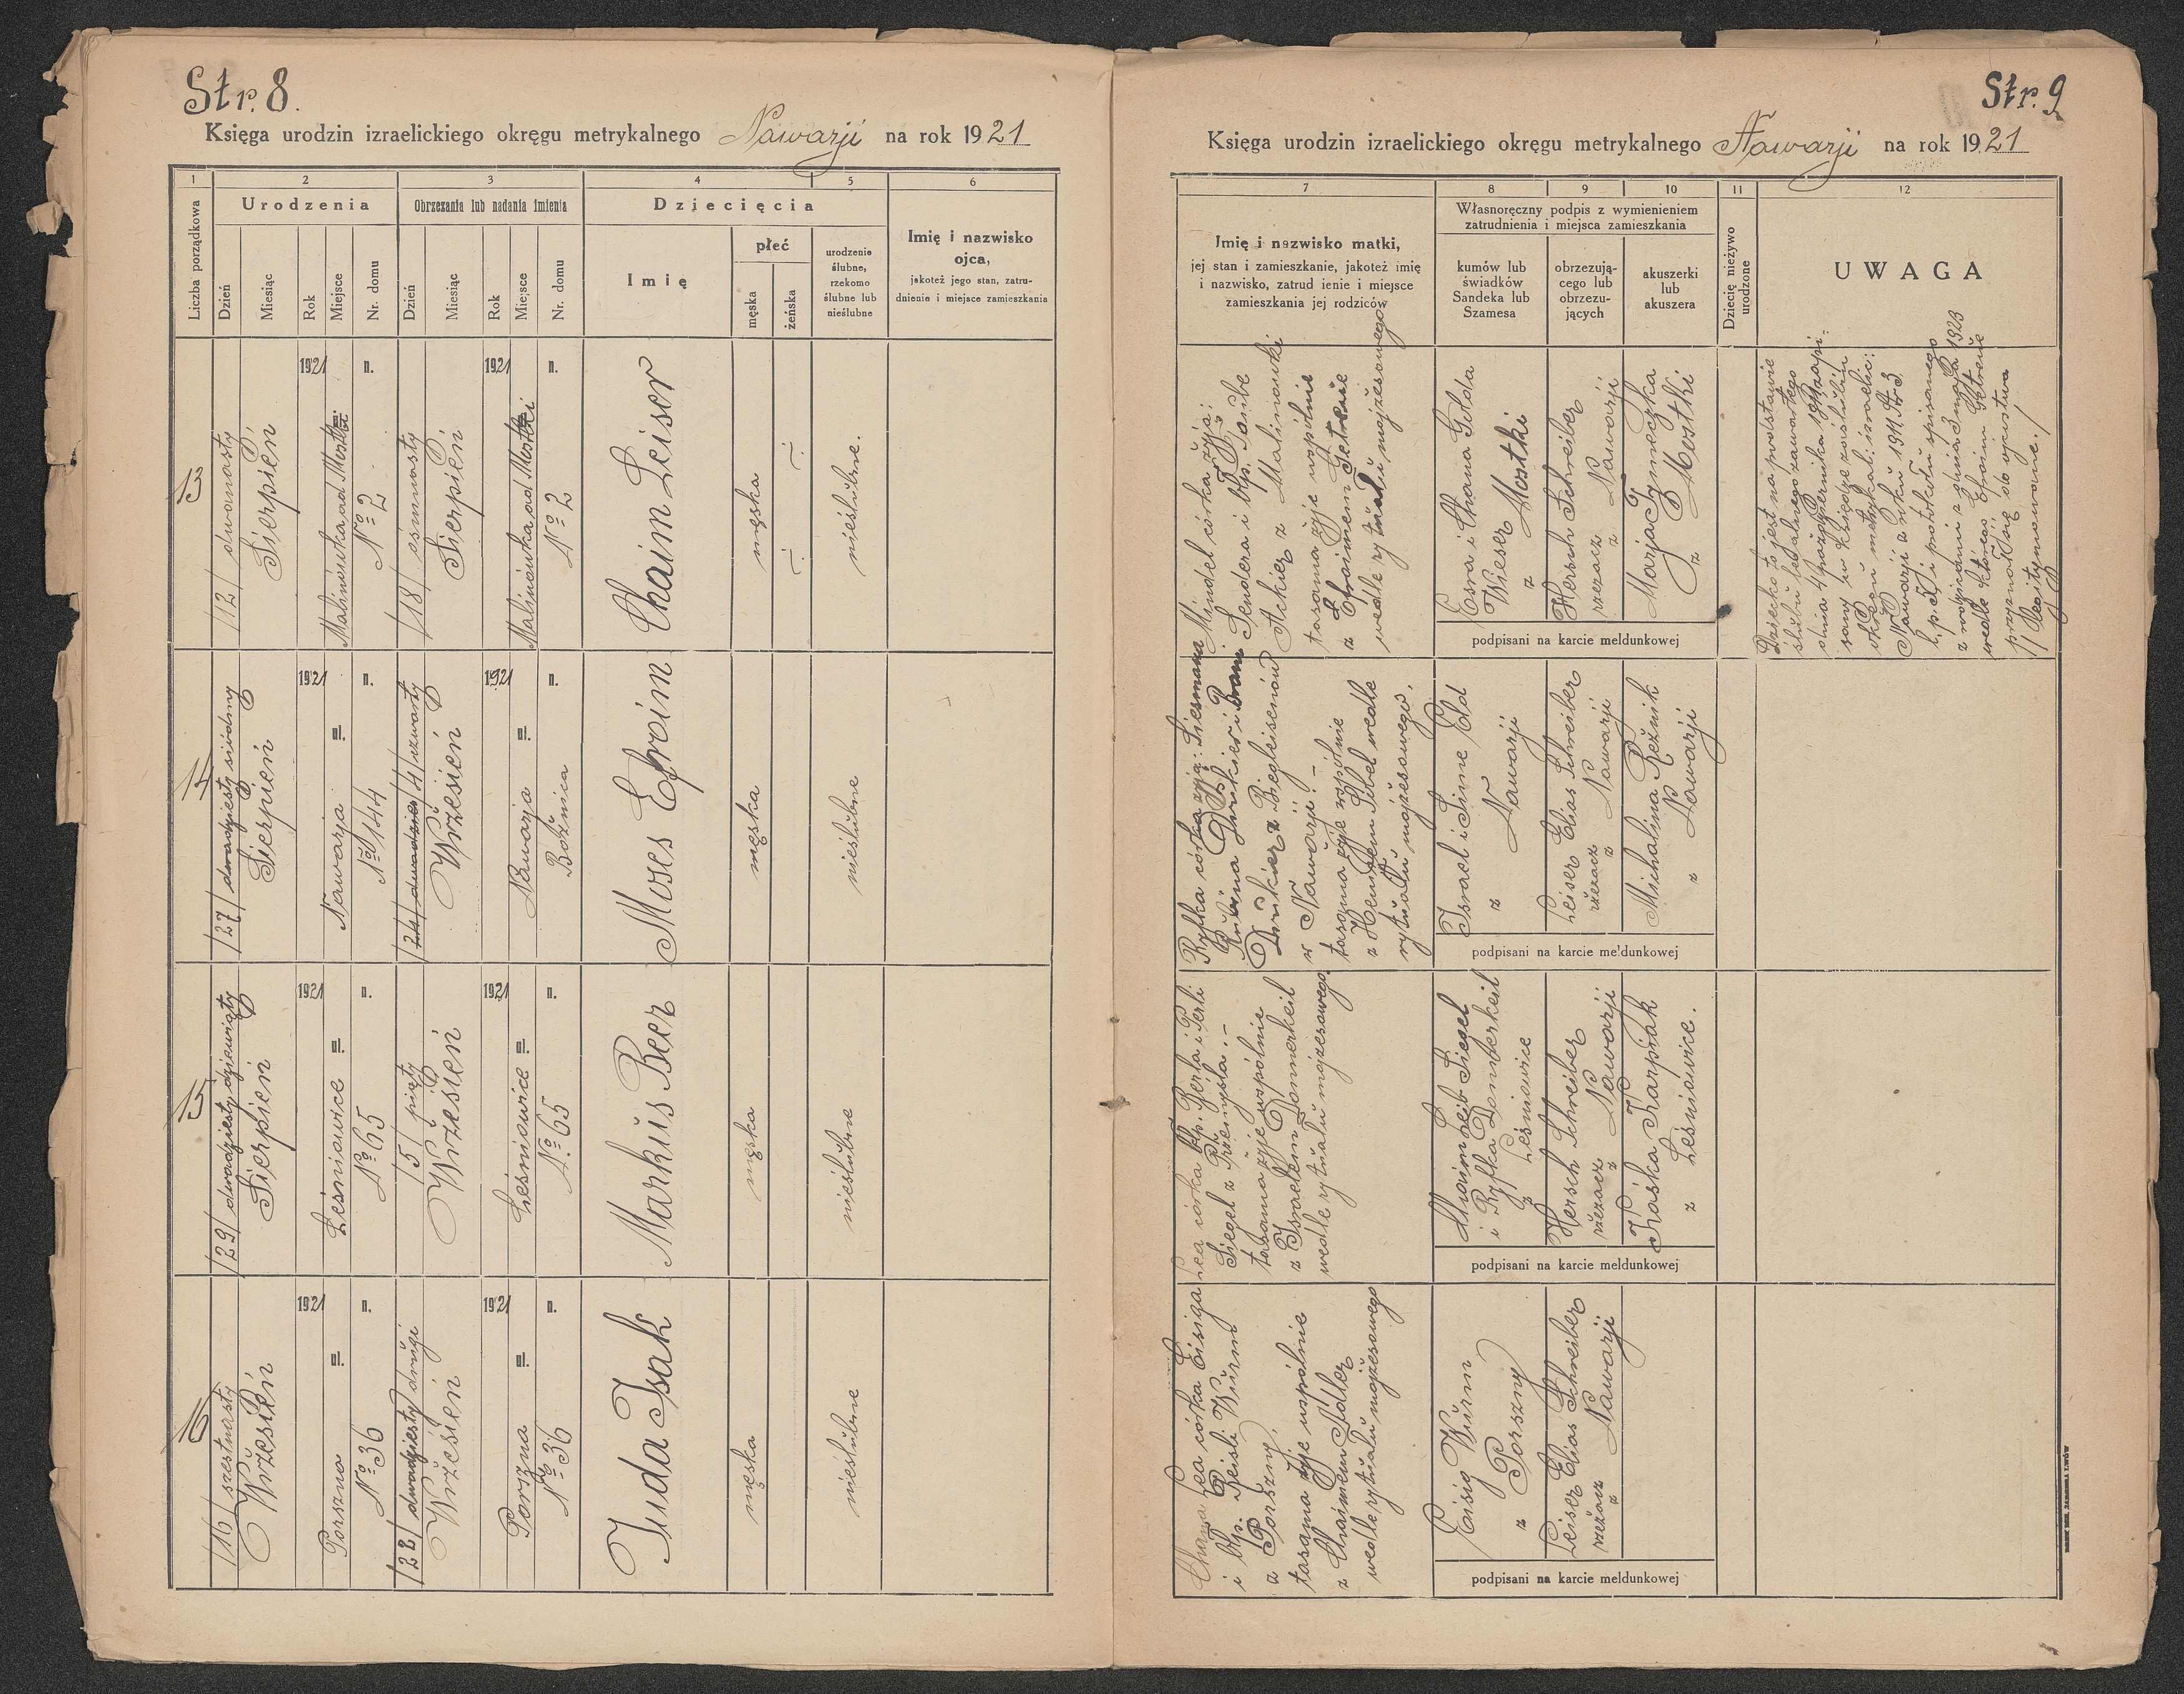 Str. 8.
Księga urodzin izraelickiego okręgu metrykalnego Nawarji na rok 1921
1
2
3
4
5
6
Liczba porządkowa
Urodzenia
Obrzezania lub nadania imienia
Dziecięcia
Imię i nazwisko
ojca,
jakoteż jego stan, zatru-
dnienie i miejsce zamieszkania
Dzień
Miesiąc
Rok
Miejsce
Nr. domu
Dzień
Miesiąc
Rok
Miejsce
Nr. domu
Imię
płeć
męska
żeńska
urodzenie
ślubne,
rzekomo
ślubne lub
nieślubne
13
/12/ dwunasty
Sierpień
1921
Malinówka ad Mostki
n.
No 2
/18/ ośmnasty
Sierpień
1921
Malinówka ad Mostki
n.
No 2
Chaim Leiser
męska
nieślubne.
14
/27/ dwadziesty siódmy
Sierpień
1921
Nawarja =
n.
No 144
/24/ dwudzies /4/ czwarty
Wrzesień
1921
Nawarja =
n.
Bożnica
Moses Efroim
męska
nieślubne
15
/29/ dwadziesty dziewiąty
Sierpień
1921
Leśniowice =
n.
No 65
/5/ piąty
Wrzesień
1921
Leśniowice =
n.
No 65
Markus Beer
męska
nieślubne
16
/16/ szestnasty
Wrzesień
1921
Porszna =
n.
No 36
/22/ dwadziesty drugi
Wrzesień
1921
Porszna =
n.
No 36
Juda Isak
męska
nieślubne
Str. 9
Księga urodzin izraelickiego okręgu metrykalnego Nawarji na rok 1921
7
8
9
10
11
12
Imię i nazwisko matki,
jej stan i zamieszkanie, jakoteż imię
i nazwisko, zatrud ienie i miejsce
zamieszkania jej rodziców
Własnoręczny podpis z wymienieniem
zatrudnienia i miejsca zamieszkania
kumów lub
świadków
Sandeka lub
Szamesa
obrzezują-
cego lub
obrzezu-
jących
akuszerki
lub
akuszera
Dziecię nieżywo
urodzone
UWAGA
Mindel córka żyją:
Sendera i błp. Taube
Ackier z Malinówki
tasama żyje wspólnie
z Efroimem
wedle rytuału mojżesowego
Esra i Chana Golda
Wieser
z Mostki
Hersch Schreiber
rzezacz z Nawarji
Marja
z Mostki
podpisani na karcie meldunkowej
Dziecko to jest na podstawie
ślubu legalnego zawartego
dnia 4 października zapi-
sany w księdze zaślubin
okręgu metrykal: izraelic:
Nawarji z roku 1911 St. 3
l.p. i protokołu spisanego
z rodzicami z dnia 3 maja 1923
wedle którego Efroim
przyznał się do ojcostwa
/ Legitymowane. /
Ryfka córka żyją:
Rubina Druker i
Druker z Biegleisenów
w Nawarji. –
tasama żyje wspólnie
z Sibel wedle
rytuału mojżesowego.
Israel i Sime Eld
z Nawarji
Leiser Elias Schreiber
rzezacz z Nawarji
Michalina Reźnik
z Nawarji
podpisani na karcie meldunkowej
Lea córka błp. Berla i Perli
Siegel z Przemyśla. –
tasama żyje wspólnie
z Israelem Donnerkeil
wedle rytuału mojżesowego
Leib Siegel
i Ryfka Donnerkeil
z Leśniowice
Hersch Schreiber
rzezacz z Nawarji
Kaśka Karpiak
z Leśniowice.
podpisani na karcie meldunkowej
Chana Lea córka Eisiga
i błp. Reisli Würm
z Porszny.
tasama żyje wspólnie
z Chaimem Adler
wedle rytuału mojżesowego
Eisig Würm
z Porszny
Leiser Elias Schreiber
rzezacz z Nawarji
podpisani na karcie meldunkowej